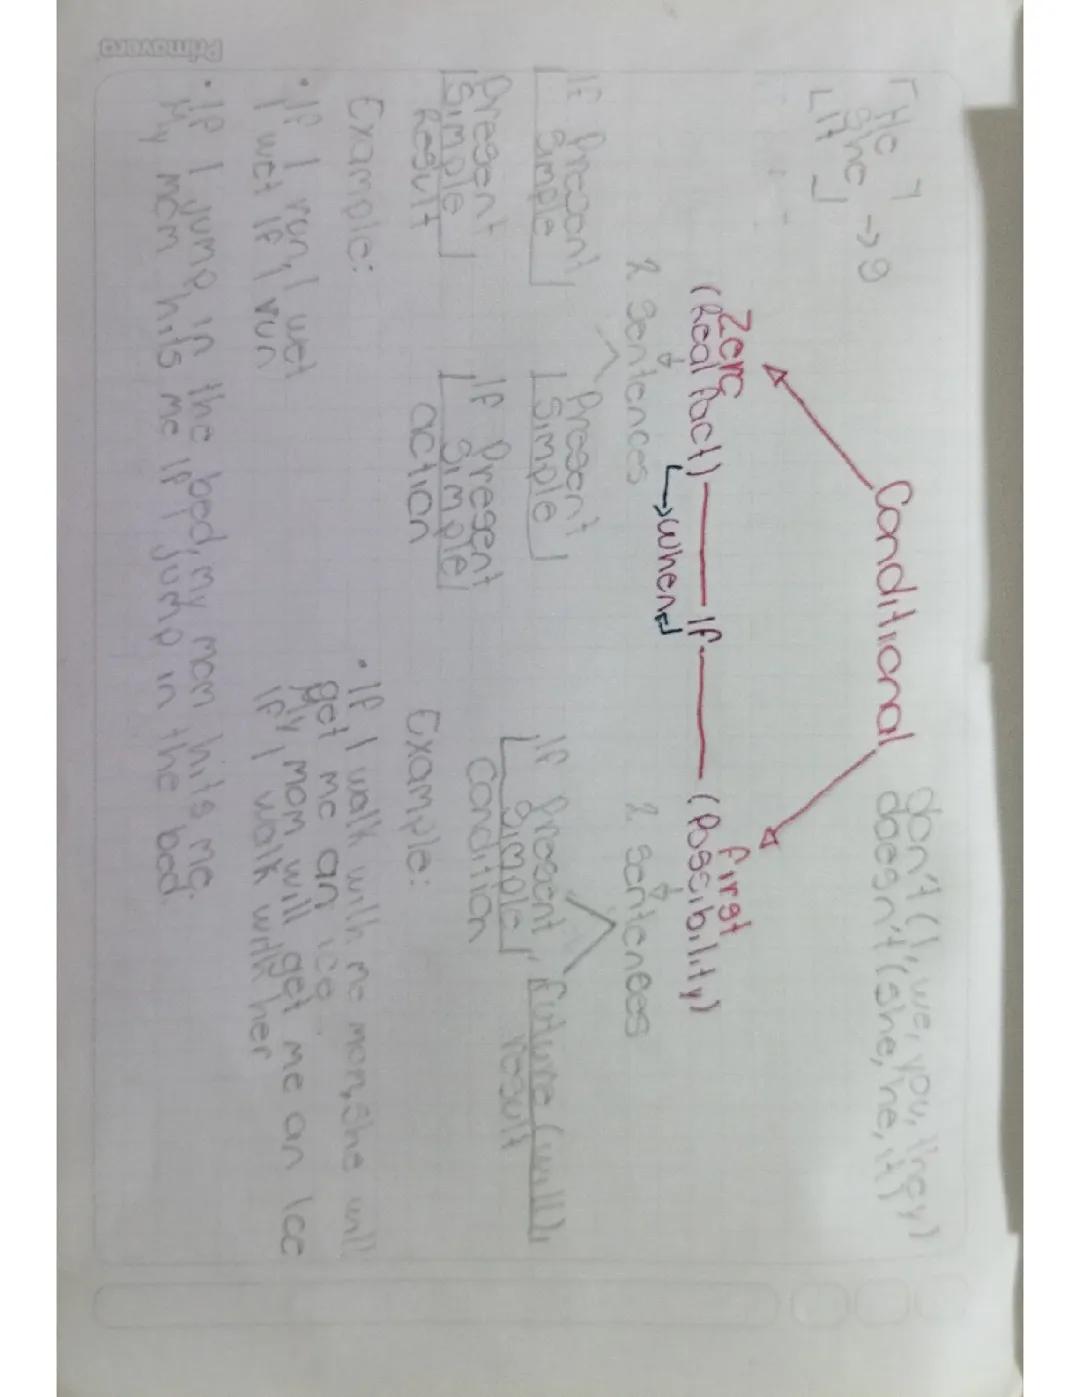 Conditional
don't (I, we, you, they)
doesn't (she, he, it)
He
she → s
it
Zero
(Real fact) — If — (Possibility)
First
→ when
2 sentences
2 sentences
If Present
Simple
Present
Simple
Present
Simple
Result
If Present
Simple
action
If Present
Simple,
Condition
future (will)
result
Example:
• If I run, I wet
I wet if I run
• If I jump in the bed, my mom hits me.
My mom hits me if I jump in the bed.
Example:
• If I walk with me mom, she will
get me an ice.
My mom will get me an Ice
if I walk with her
Primavera